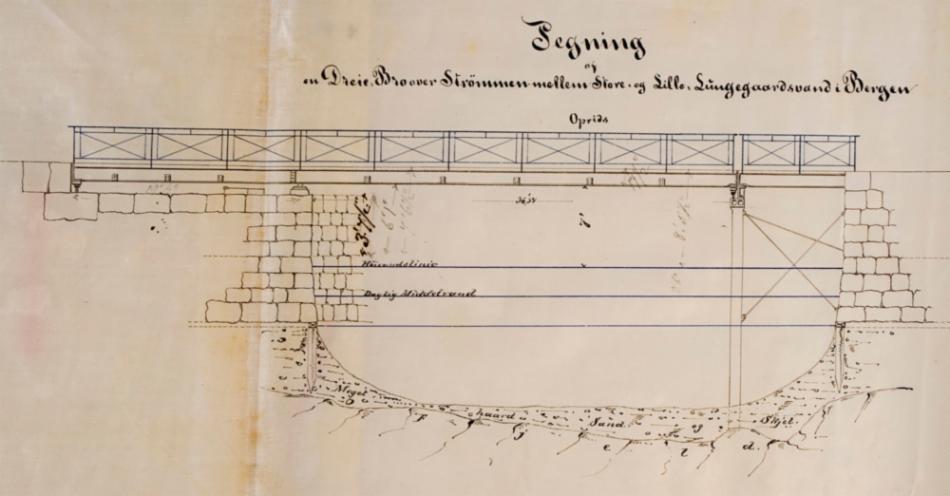 Tegning
af
en Dreie-Bro over Strömmen mellem Store- og Lille-Lungegaardsvand i Bergen
Oprids
Höivandslinie
Daglig Middelvand
Meget haard Sand og Skjel
F j e l d.